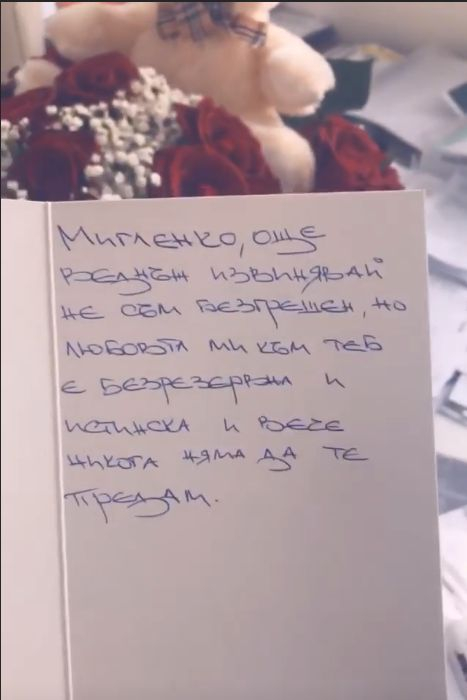 Мигленко, още
веднъж извинявай
не съм безгрешен, но
любовта ми към теб
е безрезервна и
истинска и вече
никога няма да те
предам.